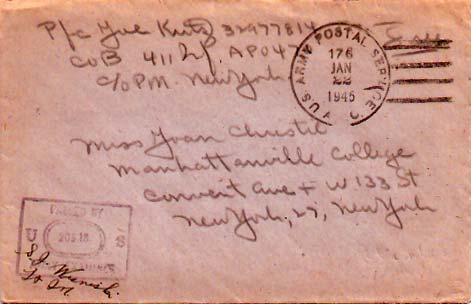 Pfc Joe Kutz 32977814 Free
Co B 411 Inf. APO 47
C/O PM. New York
U.S. ARMY POSTAL SERVICE
176
JAN
22
1945
Miss Joan Christie
Manhattanville College
Convent Ave + W 133 St
New York, 27, New York
PASSED BY
U S
ARMY EXAMINER
S.J.